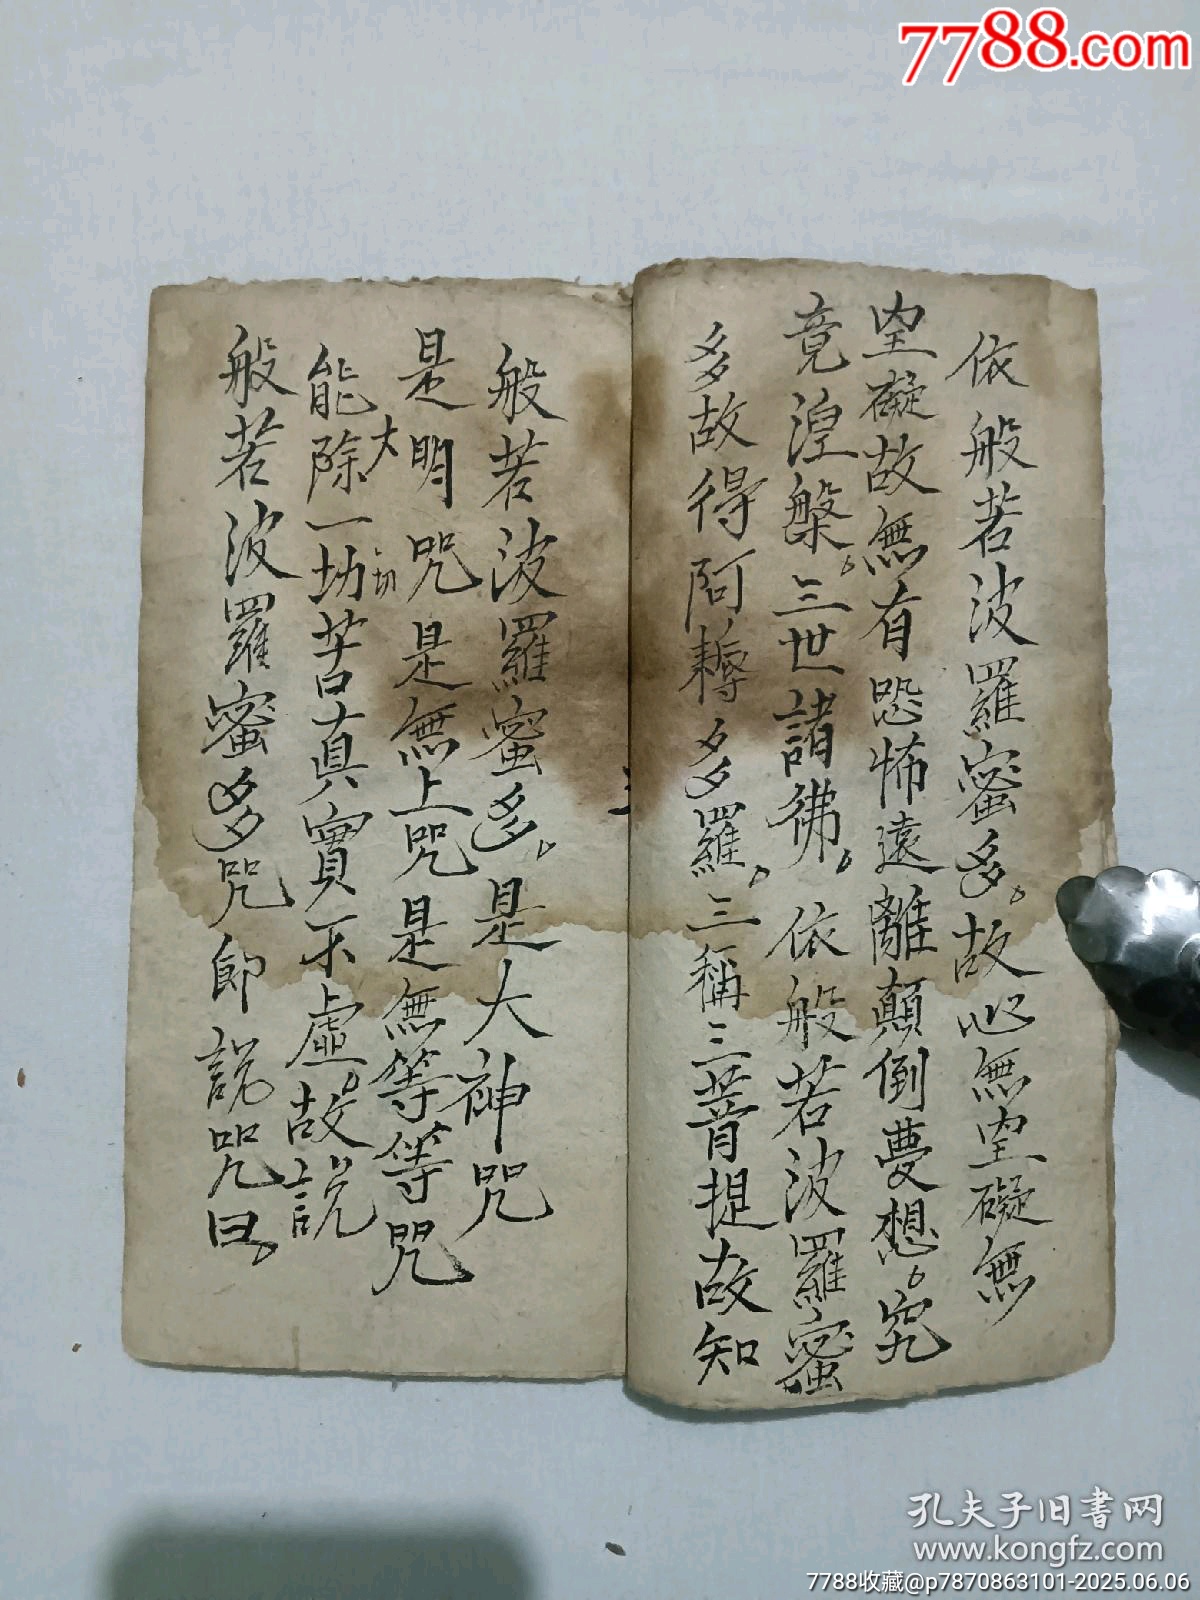 7788.com
依般若波羅蜜多。故心無罣礙無
罣礙故無有恐怖遠離顛倒夢想。究
竟湼槃。三世諸彿。依般若波羅蜜
多故得阿耨多羅。三稱三菩提故知
般若波羅蜜多。是大神咒
是大明咒是無上咒是無等等咒
能除一切苦真實不虛。故説
切
般若波羅蜜多咒即説咒曰。
孔夫子旧书网
www.kongfz.com
7788收藏@p7870863101-2025.06.06